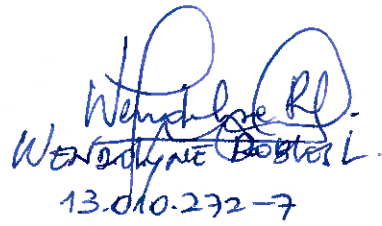 Wendolyne Rl.
WENDOLYNE ROBLES L.
13.010.272-7